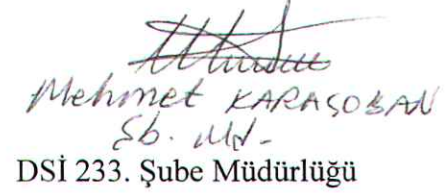 Mehmet KARAÇOBAN
Şb. Md.
DSİ 233. Şube Müdürlüğü